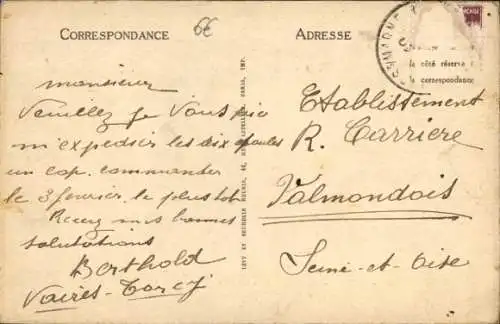 CORRESPONDANCE
6€
ADRESSE
le côté réserve
la correspondance
monsieur
Veuillez je vous prie
m'expedier les six poules
un cop. commander
le 3 fevrier le plus tot
Recevez mes bonnes
salutations
Berthold
Vaires-Torcy
LEVY ET NEURDEIN REUNIS, 44, RUE LETELLIER, PARIS, IMP.
Etablissement
R. Carriere
Valmondois
Seine-et-Oise